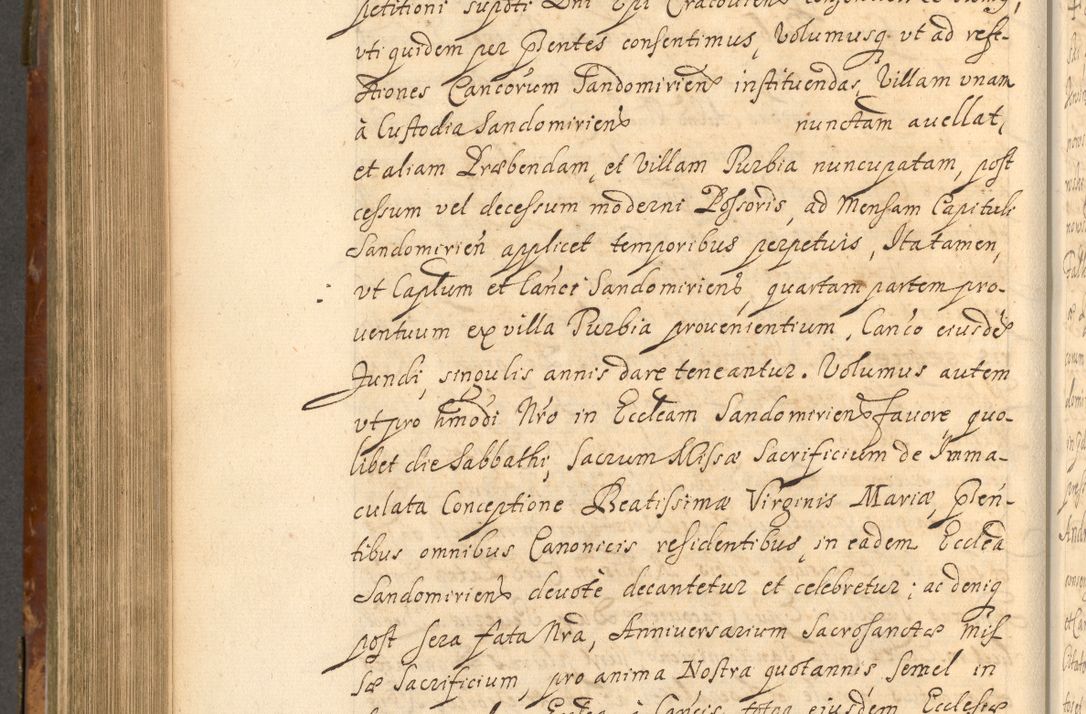 petitioni supdti Dni Epi Cracouien
vti quidem per Plentes consentimus, Volumusq. vt ad refe-
ctiones Cancorum Sandomirien instituendas, Villam vnam
à Custodia Sandomirien nunctam auellat,
et aliam Præbendam, et Villam Purbia nuncupatam, post
cessum vel decessum moderni Possoris, ad Mensam Capituli
Sandomirien applicet temporibus perpetuis, Ita tamen,
vt Caplum et Canci Sandomirien, quartam partem pro-
uentuum ex villa Purbia prouenientium, Canco eiusdē
Fundi, singulis annis dare teneantur. Volumus autem
vt pro hmōdi Nro in Eccleam Sandomirien fauore, quo-
libet die Sabbathi, Sacrum Missæ Sacrificium de Imma-
culata Conceptione Beatissimæ Virginis Mariæ, Plen-
tibus omnibus Canonicis residentibus, in eadem Ecclea
Sandomirien deuotè decantetur et celebretur; ac deniq
post sera fata Nra, Anniuersarium Sacrosanctæ Mis
sæ Sacrificium, pro anima Nostra quotannis semel in
eiusdem Ecclesiæ